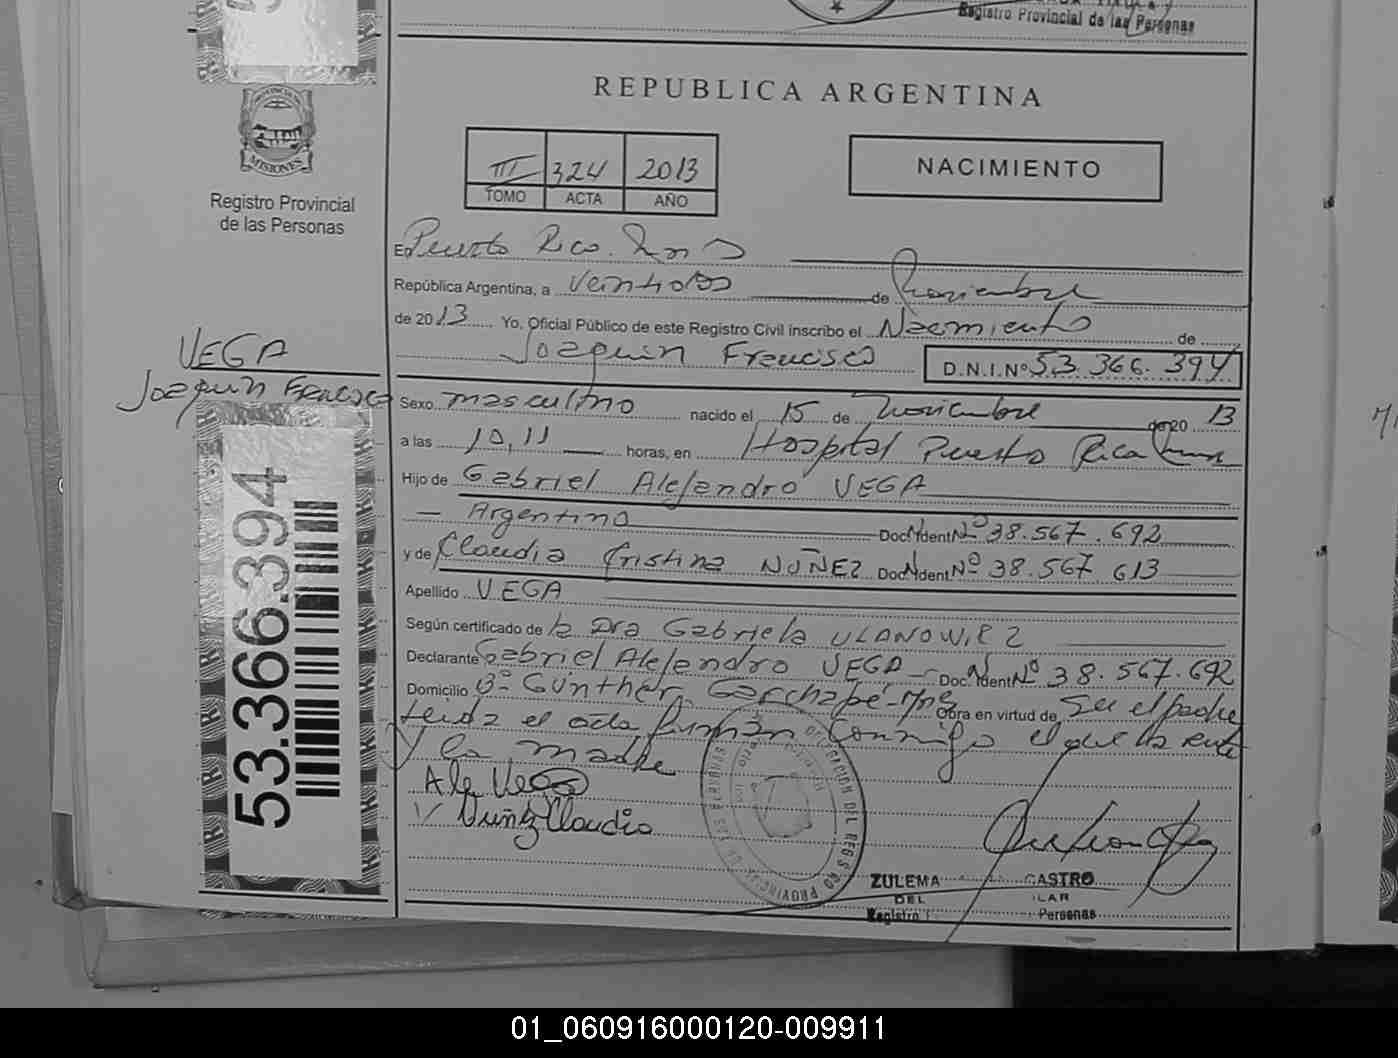 Registro Provincial de las Personas
REPUBLICA ARGENTINA
III 324 2013
TOMO ACTA AÑO
NACIMIENTO
MISIONES
Registro Provincial
de las Personas
En Puerto Rico. Mnes
República Argentina, a veintidos de Noviembre
de 2013 Yo, Oficial Público de este Registro Civil inscribo el Nacimiento de
Joaquin Francisco D.N.I.Nº 53.366.394
VEGA
Joaquin Francisco
Sexo masculino nacido el 15 de noviembre de 20 13
a las 10,11 horas, en Hospital Puerto Rico Mnes
Hijo de Gabriel Alejandro VEGA
- Argentino Doc. Ident. Nº 38.567.692
y de Claudia Cristina NUÑEZ Doc. Ident. Nº 38.567 613
Apellido VEGA
Según certificado de la Dra Gabriela ULANOWICZ
Declarante Gabriel Alejandro VEGA - Doc. Ident. Nº 38.567.692
Domicilio Bº Günther, Garuhapé-Mnes Obra en virtud de Ser el padre
Leida el acta firman conmigo el declarante
y la madre
Ale Vega
Nuñez Claudia
53.366.394
DELEGACION DEL REGISTRO PROVINCIAL DE LAS PERSONAS
ZULEMA CASTRO
DEL
Registro Personas
01_060916000120-009911